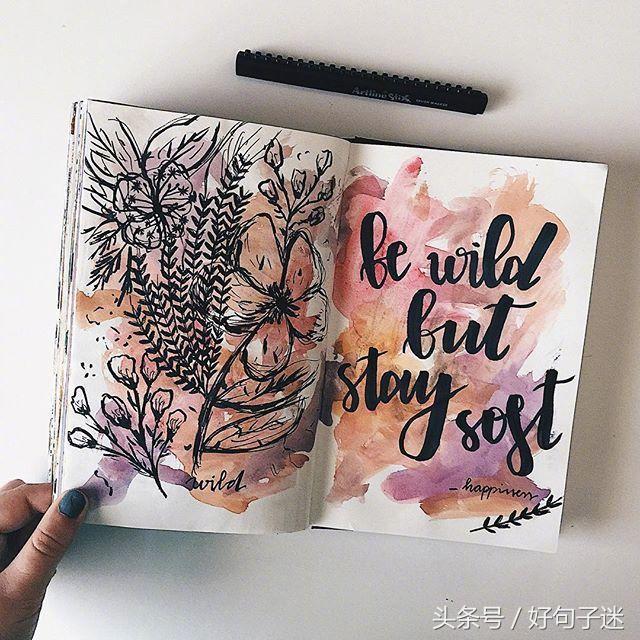 Artline Stix BRUSH MARKER
wild
be wild
but
stay
soft
- happiness
头条号 / 好句子迷